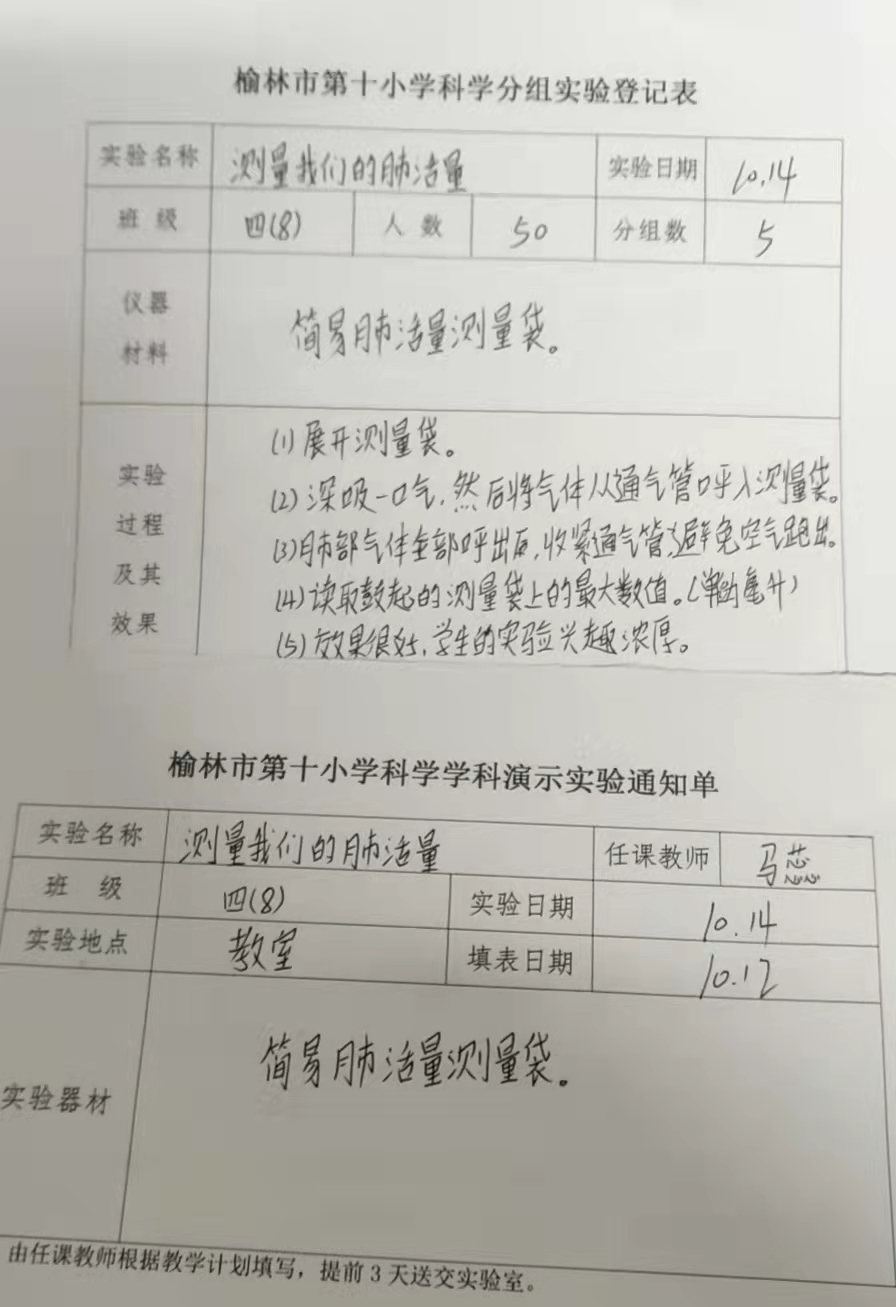 榆林市第十小学科学分组实验登记表
实验名称 测量我们的肺活量 实验日期 10.14
班 级 四(8) 人 数 50 分组数 5
仪器
材料
简易肺活量测量袋。
实验
过程
及其
效果
(1)展开测量袋。
(2)深吸一口气,然后将气体从通气管呼入测量袋。
(3)肺部气体全部呼出后,收紧通气管,避免空气跑出。
(4)读取鼓起的测量袋上的最大数值。(单位毫升)
(5)效果很好,学生的实验兴趣浓厚。
榆林市第十小学科学学科演示实验通知单
实验名称 测量我们的肺活量 任课教师 马
班 级 四(8) 实验日期 10.14
实验地点 教室 填表日期 10.12
实验器材 简易肺活量测量袋。
由任课教师根据教学计划填写，提前 3 天送交实验室。